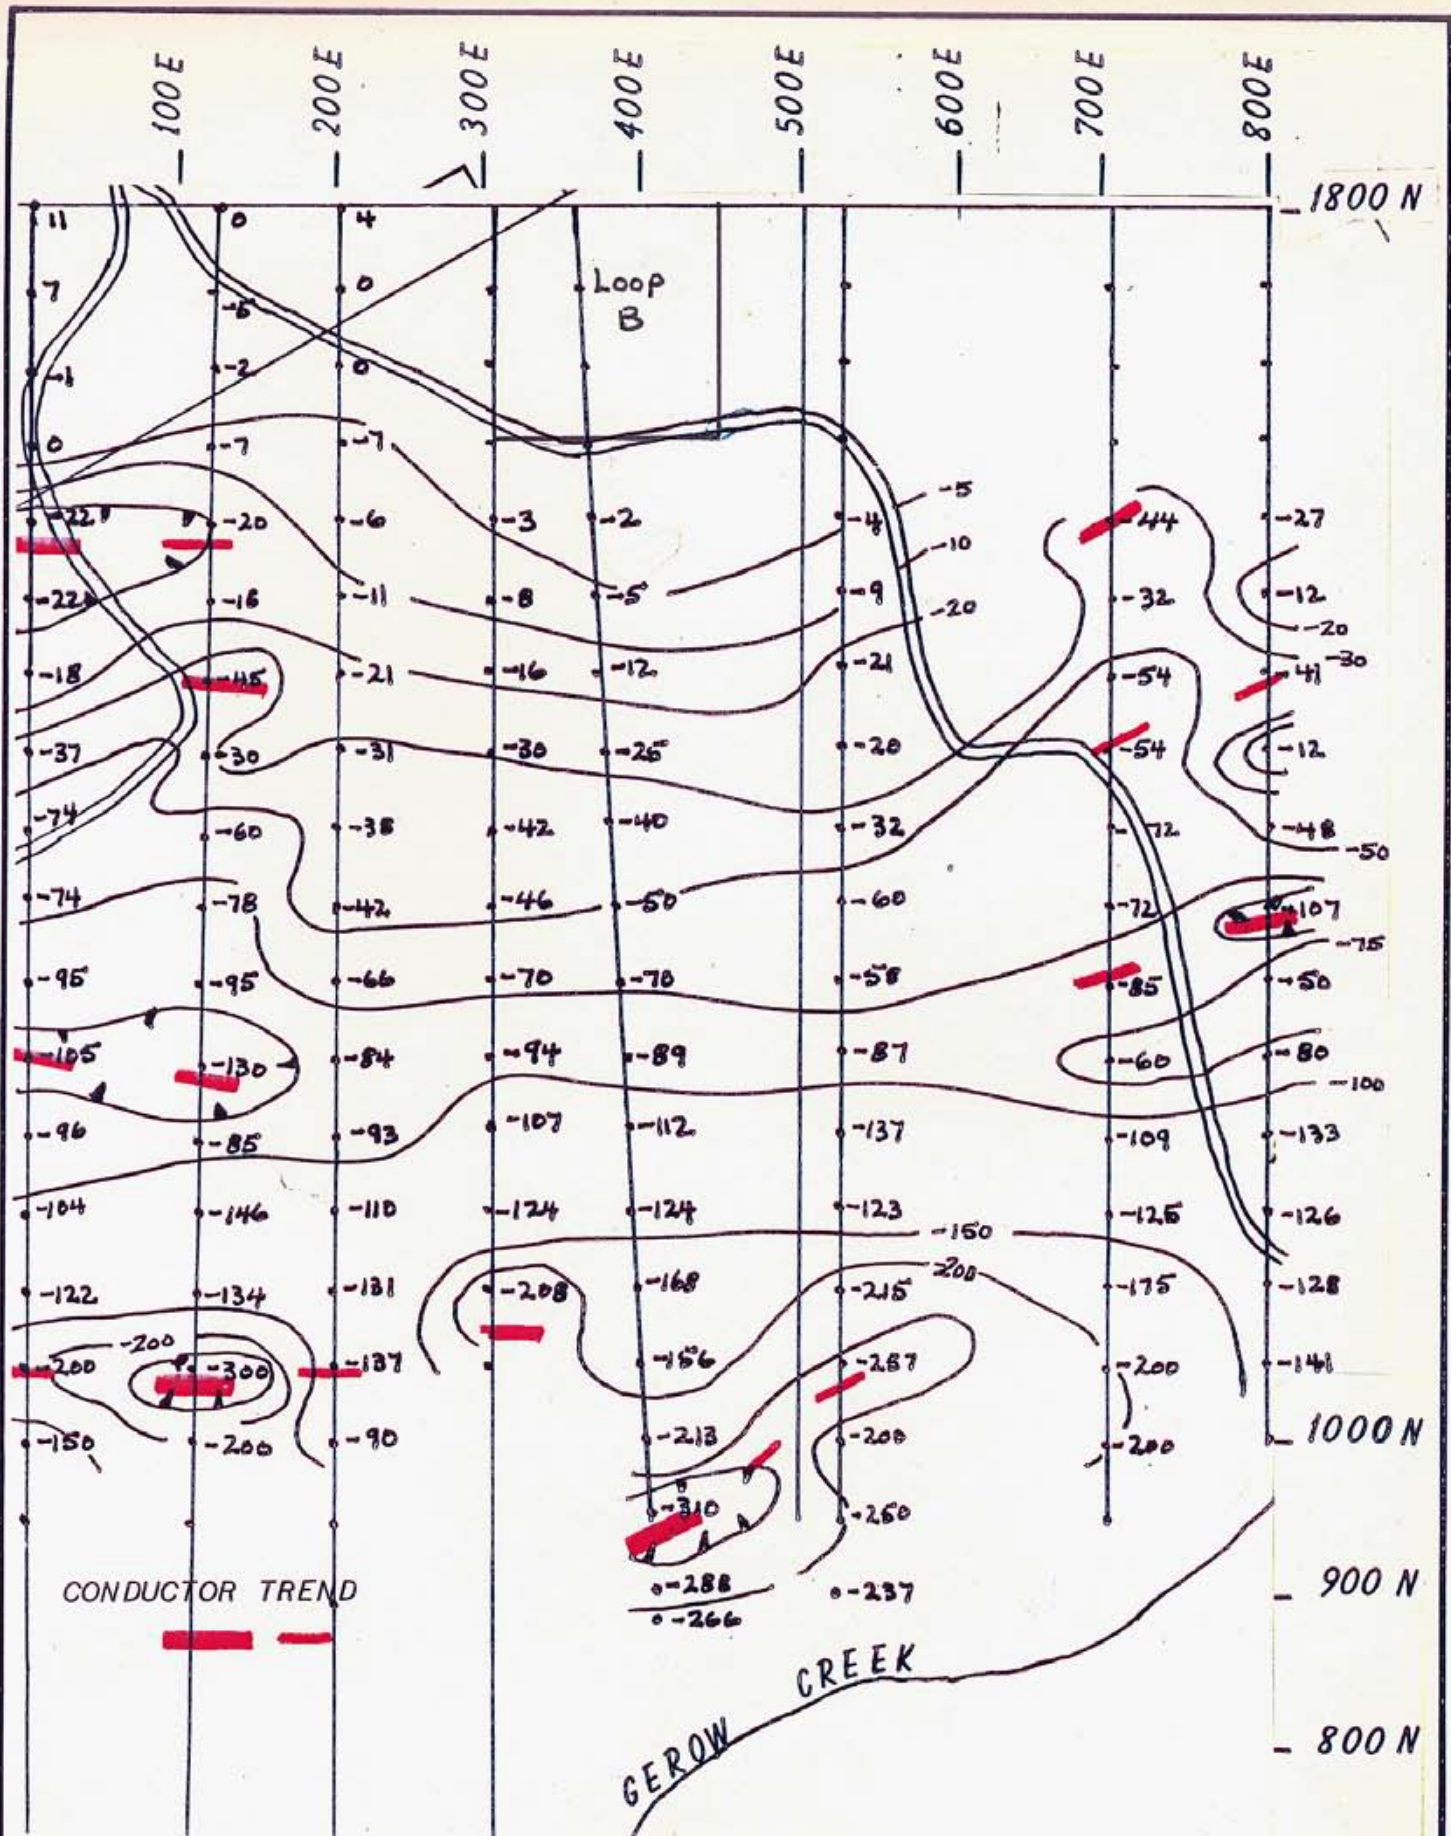 100E 200E 300E 400E 500E 600E 700E 800E
1800 N
11 0 4
7 -5 0 Loop
B
-1 -2 0
0 -7 -7
-5
-22 -20 -6 -3 -2 -4 -44 -27
-10
-22 -16 -11 -8 -5 -9 -32 -12
-20 -20
-30
-18 -45 -21 -16 -12 -21 -54 -41
-37 -30 -31 -30 -25 -20 -54 -12
-74 -60 -38 -42 -40 -32 -72 -48
-50
-74 -78 -42 -46 -50 -60 -72 -107
-75
-95 -95 -66 -70 -70 -58 -85 -50
-105 -130 -84 -94 -89 -87 -60 -80
-100
-96 -85 -93 -107 -112 -137 -109 -133
-104 -146 -110 -124 -124 -123 -125 -126
-150
-200
-122 -134 -131 -208 -168 -215 -175 -128
-200
-200 -300 -137 -156 -287 -200 -141
-150 -200 -90 -213 -200 -200 1000 N
-310 -250
-288 -237 900 N
-266
CONDUCTOR TREND
GEROW CREEK
800 N